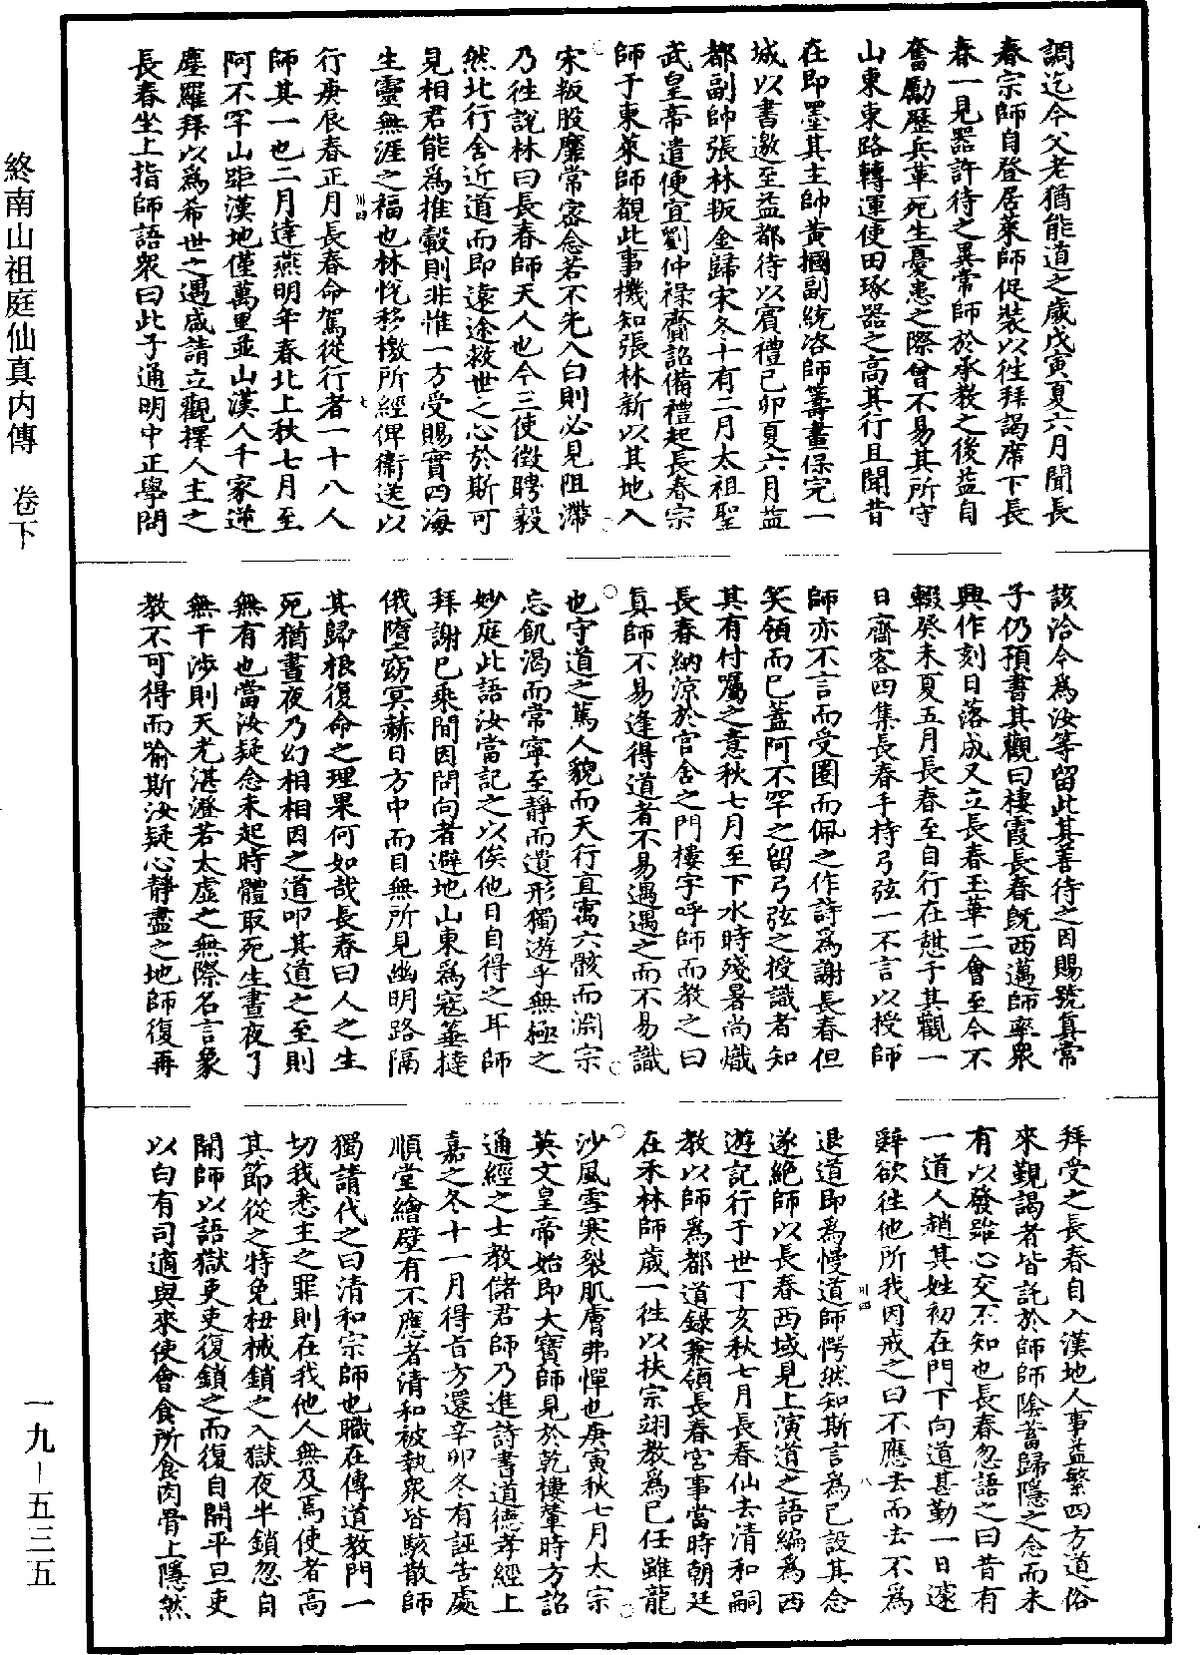 調迄今父老猶能道之歲戊寅夏六月聞長
春宗師自登居萊師促裝以往拜謁席下長
春一見器許待之異常師於承教之後益自
奮勵歷兵革死生憂患之際曾不易其所守
山東東路轉運使田琢器之高其行且聞昔
在即墨其主帥黃摑副統咨師籌畫保完一
城以書邀至益都待以賓禮己卯夏六月益
都副帥張林叛金歸宋冬十有二月太祖聖
武皇帝遣便宜劉仲祿齎詔備禮起長春宗
師于東萊師覩此事機知張林新以其地入
宋叛股靡常密念若不先入白則必見阻滯
乃往說林曰長春師天人也今三使徵聘毅
然北行舍近道而即遠途救世之心於斯可
見相君能為推轂則非惟一方受賜實四海
生靈無涯之福也林悅移檄所經俾衛送以
行庚辰春正月長春命駕從行者一十八人
師其一也二月達燕明年春北上秋七月至
阿不罕山距漢地僅萬里並山漢人千家逆
塵羅拜以為希世之遇咸請立觀擇人主之
長春坐上指師語衆曰此子通明中正學問
該洽今為汝等留此其善待之因賜號真常
子仍預書其觀曰棲霞長春既西邁師率衆
興作刻日落成又立長春玉華二會至今不
輟癸未夏五月長春至自行在憇于其觀一
日齋客四集長春手持弓弦一不言以授師
師亦不言而受圈而佩之作詩為謝長春但
笑領而已蓋阿不罕之留弓弦之授識者知
其有付囑之意秋七月至下水時殘暑尚熾
長春納涼於官舍之門樓字呼師而教之曰
真師不易逢得道者不易遇遇之而不易識
也守道之篤人貌而天行直寓六骸而淵宗
忘飢渴而常寧至靜而遺形獨遊乎無極之
妙庭此語汝當記之以俟他日自得之耳師
拜謝已乘間因問向者避地山東為寇箠撻
俄墮窈冥赫日方中而目無所見幽明路隔
其歸根復命之理果何如哉長春曰人之生
死猶晝夜乃幻相相因之道叩其道之至則
無有也當汝疑念未起時體取死生晝夜了
無干涉則天光湛澄若太虛之無際名言象
教不可得而喻斯汝疑心靜盡之地師復再
拜受之長春自入漢地人事益繁四方道俗
來覲謁者皆託於師師陰蓄歸隱之念而未
有以發雖心交不知也長春忽語之曰昔有
一道人趙其姓初在門下向道甚勤一日遽
辭欲往他所我因戒之曰不應去而去不為
退道即為慢道師愕然知斯言為己設其念
遂絕師以長春西域見上演道之語編為西
遊記行于世丁亥秋七月長春仙去清和嗣
教以師為都道錄兼領長春宮事當時朝廷
在禾林師歲一往以扶宗翊教為己任雖龍
沙風雪寒裂肌膚弗憚也庚寅秋七月太宗
英文皇帝始即大寶師見於乾樓輦時方詔
通經之士教儲君師乃進詩書道德孝經上
嘉之冬十一月得旨方還辛卯冬有誣告處
順堂繪壁有不應者清和被執衆皆駭散師
獨請代之曰清和宗師也職在傳道教門一
切我悉主之罪則在我他人無及焉使者高
其節從之特免杻械鎖之入獄夜半鎖忽自
開師以語獄吏吏復鎖之而復自開平旦吏
以白有司適與來使會食所食肉骨上隱然
川四
七
川四
八
終南山祖庭仙真內傳　卷下
一九－五三五